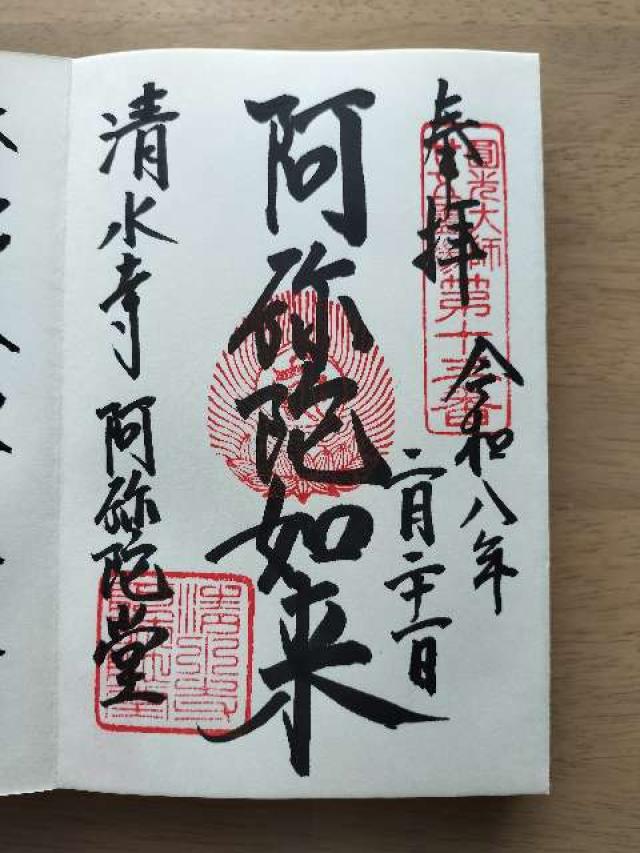 奉拝
圓光大師
第十三番
令和八年
二月二十一日
阿弥陀如来
清水寺 阿弥陀堂